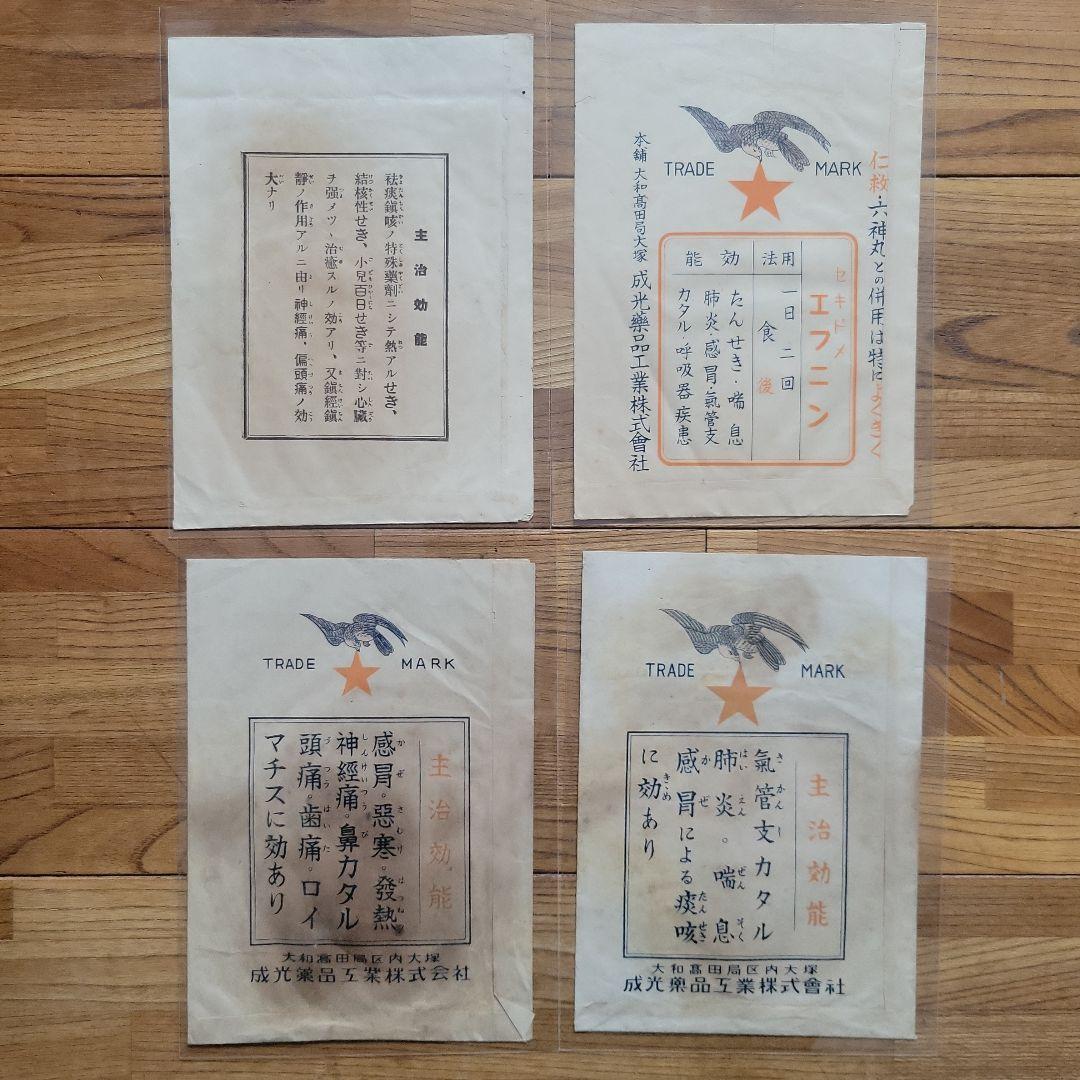 主治効能
袪痰鎭咳ノ特殊藥劑ニシテ熱アルせき、
結核性せき、小兒百日せき等ニ對シ心臟
ヲ强メツヽ治癒スルノ効アリ、又鎭經鎭
靜ノ作用アルニ由リ神經痛、偏頭痛ノ効
大ナリ
TRADE MARK
仁救・六神丸との併用は特によくきく
セキドメ
エフニン
用法
一日二回
食後
効能
たんせき・喘息
肺炎・感冒・氣管支
カタル・呼吸器疾患
本舗 大和髙田局大塚 成光藥品工業株式會社
TRADE MARK
主治効能
感冒。惡寒。發熱
かぜ さむけ はつねつ
神經痛。鼻カタル
しんけいつう び
頭痛。歯痛。ロイ
づつう はいた
マチスに効あり
大和髙田局区内大塚
成光薬品工業株式会社
TRADE MARK
主治効能
氣管支カタル
きかんし
肺炎。喘息
はいえん ぜんそく
感冒による痰咳
かぜ たんせき
に効あり
きめ
大和髙田局区内大塚
成光薬品工業株式會社